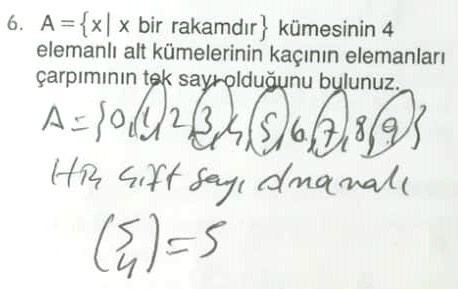 6. A = {x| x bir rakamdır} kümesinin 4
elemanlı alt kümelerinin kaçının elemanları
çarpımının tek sayı olduğunu bulunuz.
A = {0,1,2,3,4,5,6,7,8,9}
Hiç çift sayı olmamalı
(5 4) = 5